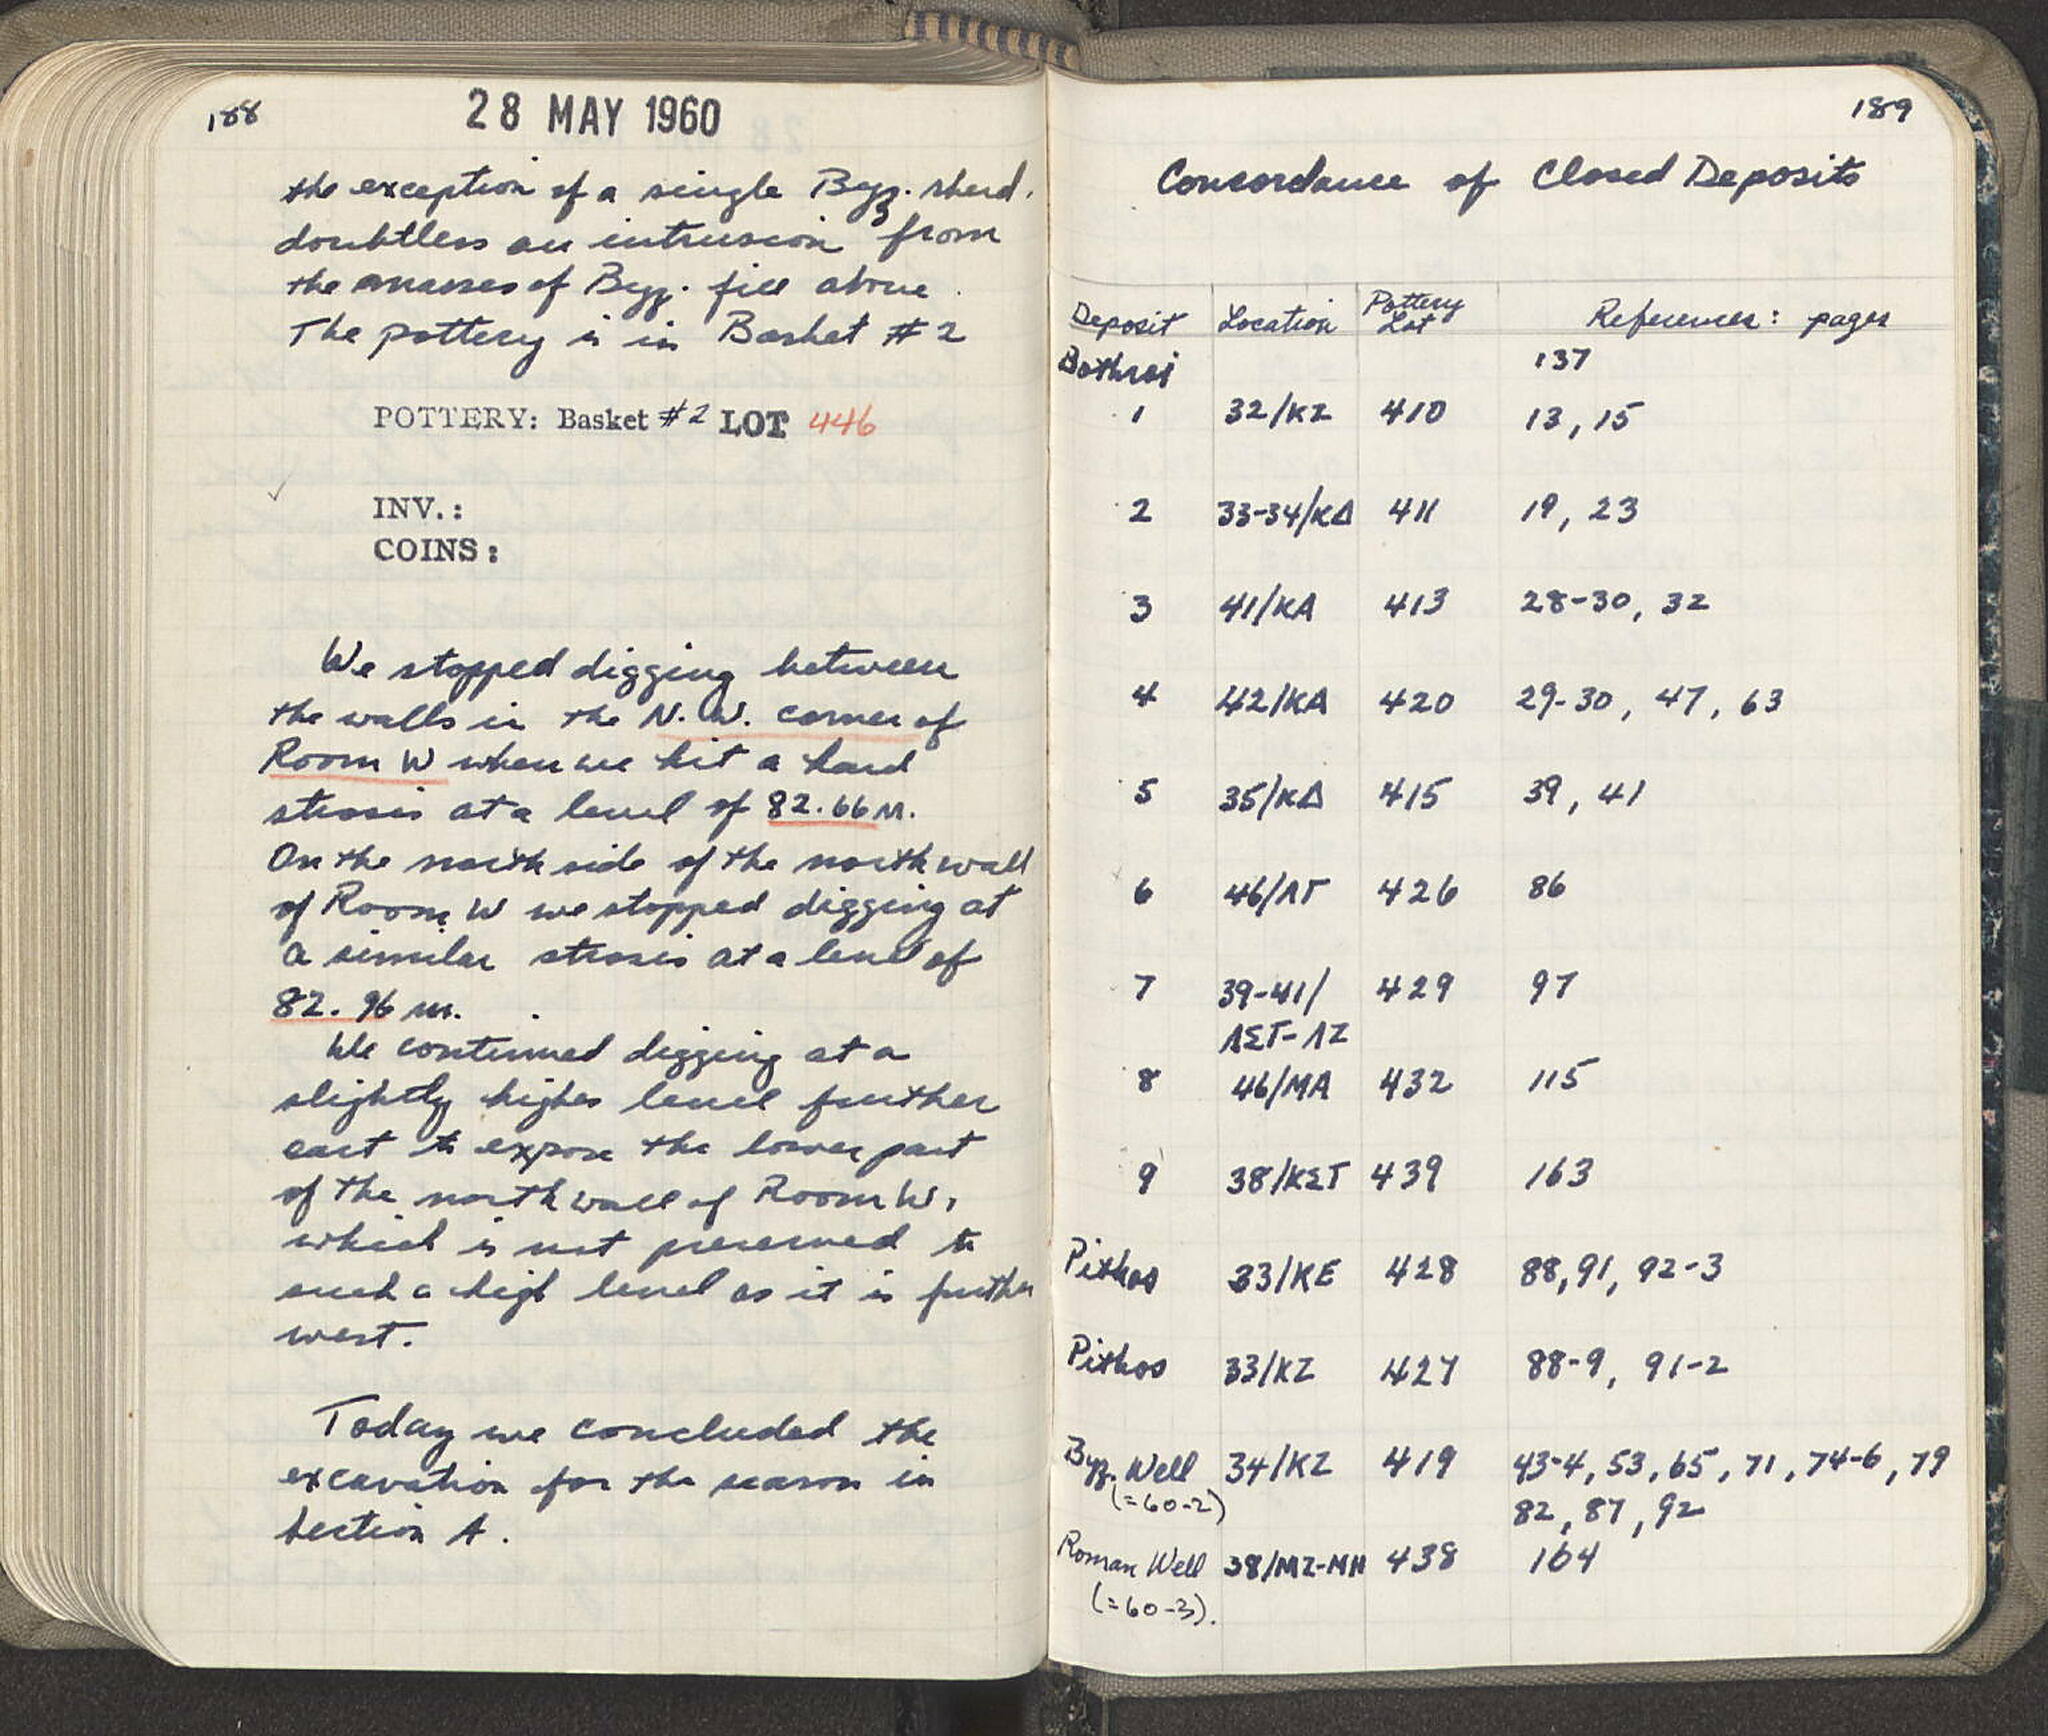 188
28 MAY 1960
the exception of a single Byz. sherd,
doubtless an intrusion from
the masses of Byz. fill above.
The pottery is in Basket #2
POTTERY: Basket #2 LOT 446
INV.:
COINS:
We stopped digging between
the walls in the N.W. corner of
Room W when we hit a hard
strosis at a level of 82.66 m.
On the north side of the north wall
of Room W we stopped digging at
a similar strosis at a level of
82.96 m.
We continued digging at a
slightly higher level further
east to expose the lower part
of the north wall of Room W,
which is not preserved to
such a high level as it is further
west.
Today we concluded the
excavation for the season in
Section A.
189
Concordance of Closed Deposits
Deposit Location Pottery Lot References: pages
Bothroi 137
1 32/KZ 410 13, 15
2 33-34/KΔ 411 19, 23
3 41/KA 413 28-30, 32
4 42/KA 420 29-30, 47, 63
5 35/KΔ 415 39, 41
6 46/ΛΓ 426 86
7 39-41/ 429 97
ΛΣΤ-ΛΖ
8 46/MA 432 115
9 38/KΣΤ 439 163
Pithos 33/KE 428 88, 91, 92-3
Pithos 33/KZ 427 88-9, 91-2
Byz. Well 34/KZ 419 43-4, 53, 65, 71, 74-6, 79
(=60-2) 82, 87, 92
Roman Well 38/MZ-MH 438 164
(=60-3).